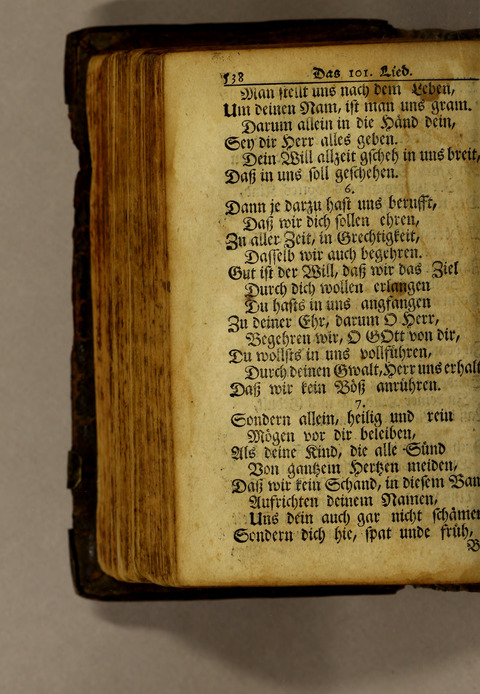 538 Das 101. Lied.
Man stellt uns nach dem Leben,
Um deinen Nam, ist man uns gram.
Darum allein in die Händ dein,
Sey dir Herr alles geben.
Dein Will allzeit gscheh in uns breit,
Daß in uns soll geschehen.
6.
Dann je darzu hast uns berufft,
Daß wir dich sollen ehren,
Zu aller Zeit, in Grechtigkeit,
Dasselb wir auch begehren.
Gut ist der Will, daß wir das Ziel
Durch dich wollen erlangen
Du hasts in uns angfangen
Zu deiner Ehr, darum O Herr,
Begehren wir, O GOtt von dir,
Du wollsts in uns vollführen,
Durch deinen Gwalt, Herr uns erhalt
Daß wir kein Böß anrühren.
7.
Sondern allein, heilig und rein
Mögen vor dir beleiben,
Als deine Kind, die alle Sünd
Von gantzem Hertzen meiden,
Daß wir kein Schand, in diesem
Aufrichten deinem Namen,
Uns dein auch gar nicht schämen
Sondern dich hie, spat unde früh,